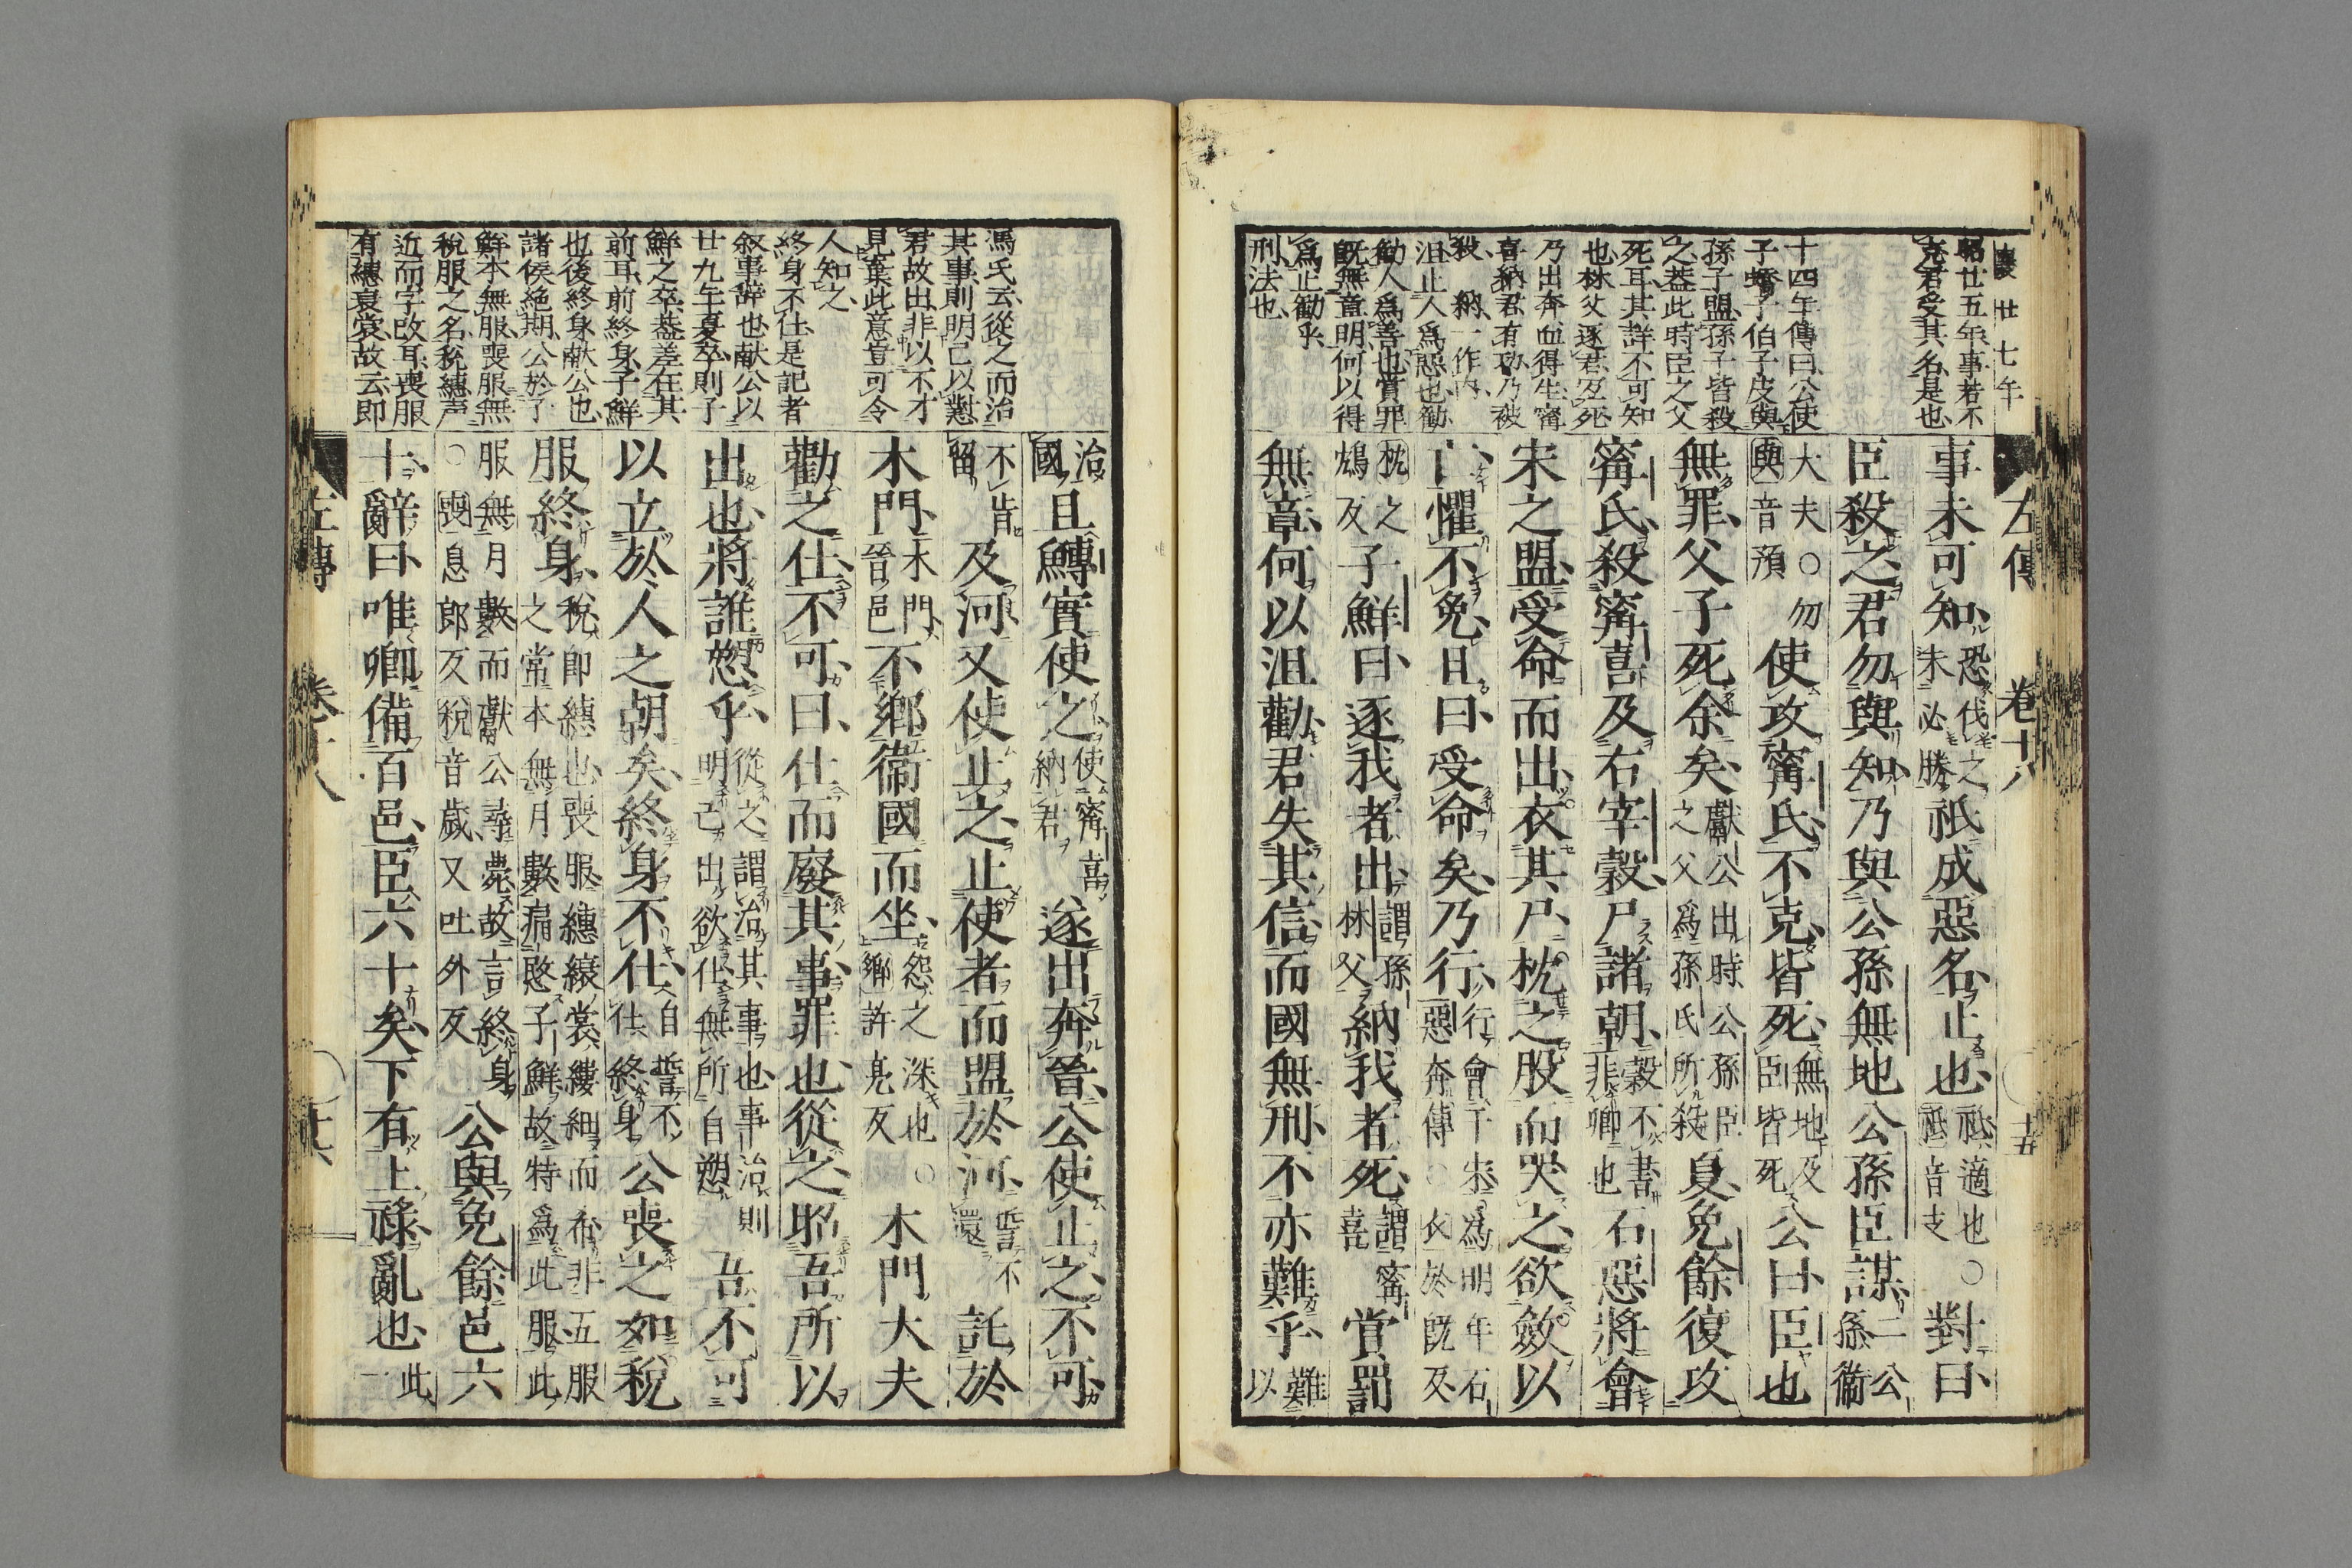 襄廿七年
左傳 卷十八 十五
昭廿五年事若不
克君受其名是也
十四年傳曰公使
子蟜子伯子皮與
孫子盟孫子皆殺
之蓋此時臣之父
死耳其詳不可知
也林父逐君互死
乃出奔而得生甯
喜納君有功乃被
殺 納一作内
沮止人爲惡也勸
勸人爲善也賞罪
既無章明何以得
爲止勸乎
刑法也
事未可知恐伐之未必勝祇成惡名止也祇適也○祇音支對曰
臣殺之君勿與知乃與公孫無地公孫臣謀二公孫衞
大夫○勿與音預使攻甯氏不克皆死無地及臣皆死公曰臣也
無罪父子死余矣獻公出時公孫臣之父爲孫氏所殺夏免餘復攻
甯氏殺甯喜及右宰穀尸諸朝穀不書非卿也石惡將會
宋之盟受命而出衣其尸枕之股而哭之欲斂以
亡懼不免且曰受命矣乃行行會于宋爲明年石惡奔傳○衣於既反
枕之鴆反子鮮曰逐我者出謂孫林父納我者死謂甯喜賞罰
無章何以沮勸君失其信而國無刑不亦難乎難以
馮氏云從之而治
其事則明己以懟
君故出非以不才
見棄此意豈可令
人知之
終身不仕是記者
叙事辞也献公以
廿九年夏卒則子
鮮之卒蓋差在其
前耳前終身子鮮
也後終身献公也
諸侯絶期公於子
鮮本無服喪服無
税服之名税繐声
近而字改耳喪服
有繐衰裳故云即
治國且鱄實使之使甯喜納君遂出奔晉公使止之不可
不肯留及河又使止之止使者而盟於河誓不還託於
木門木門晉邑不鄉衞國而坐怨之深也○鄉許亮反木門大夫
勸之仕不可曰仕而廢其事罪也從之昭吾所以
出也將誰愬乎從之謂治其事也事治則明己出欲仕無所自愬吾不可
以立於人之朝矣終身不仕自誓不仕終身公喪之如税
服終身税即繐也喪服繐縗裳縷細而希非五服之常本無月數痛愍子鮮故特爲此服此
服無月數而獻公尋薨故言終身○喪息郎反税音歲又吐外反公與免餘邑六
十辭曰唯卿備百邑臣六十矣下有上祿亂也此一
左傳 卷十八 十六